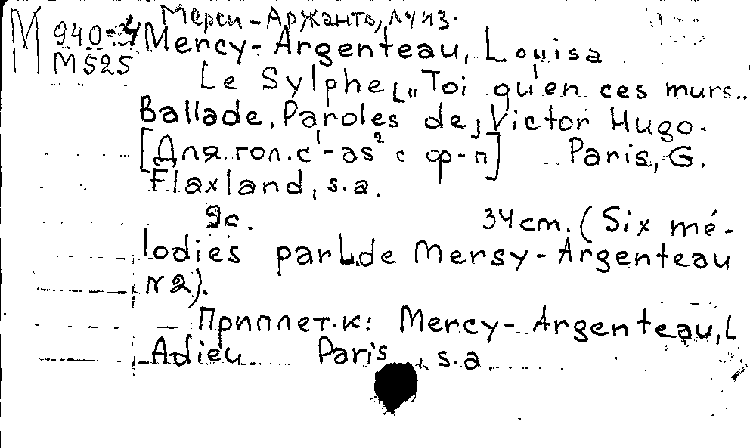 Мерси-Аржанто, Луиз.
M 940-4 Mercy-Argenteau, Louisa
M525
Le Sylphe „Toi qu'en ces murs..
Ballade. Paroles de Victor Hugo.
[Для гол. c¹-as² с ф-п] Paris, G.
Flaxland, s.a.
9с. 34cm. (Six mé-
lodies par L. de Mersy-Argenteau
N2).
Приплет. к: Mercy-Argenteau, L
Adieu Paris, s.a